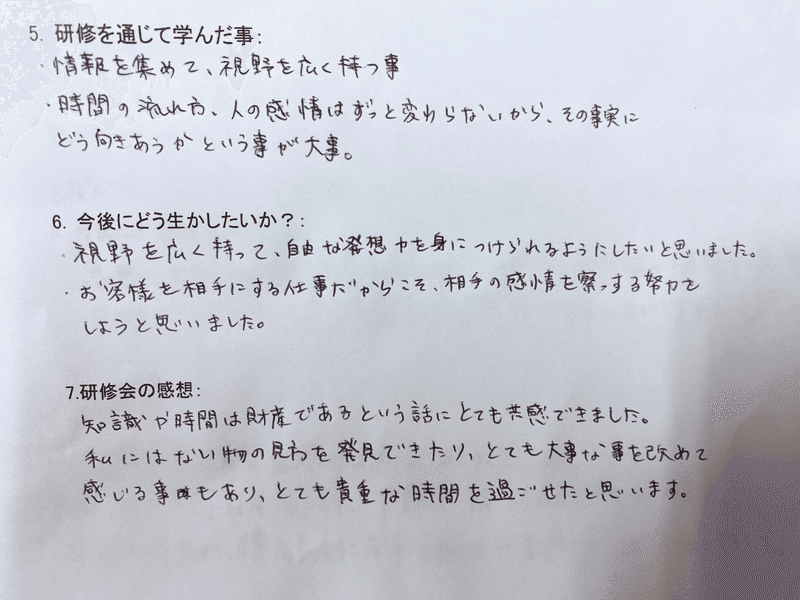 5. 研修を通じて学んだ事:
・情報を集めて、視野を広く持つ事
・時間の流れ方、人の感情はずっと変わらないから、その事実に
どう向きあうかという事が大事。
6. 今後にどう生かしたいか？:
・視野を広く持って、自由な発想力を身につけられるようにしたいと思いました。
・お客様を相手にする仕事だからこそ、相手の感情を察っする努力を
しようと思いました。
7.研修会の感想:
知識や時間は財産であるという話にとても共感できました。
私にはない物の見方を発見できたり、とても大事な事を改めて
感じる事もあり、とても貴重な時間を過ごせたと思います。